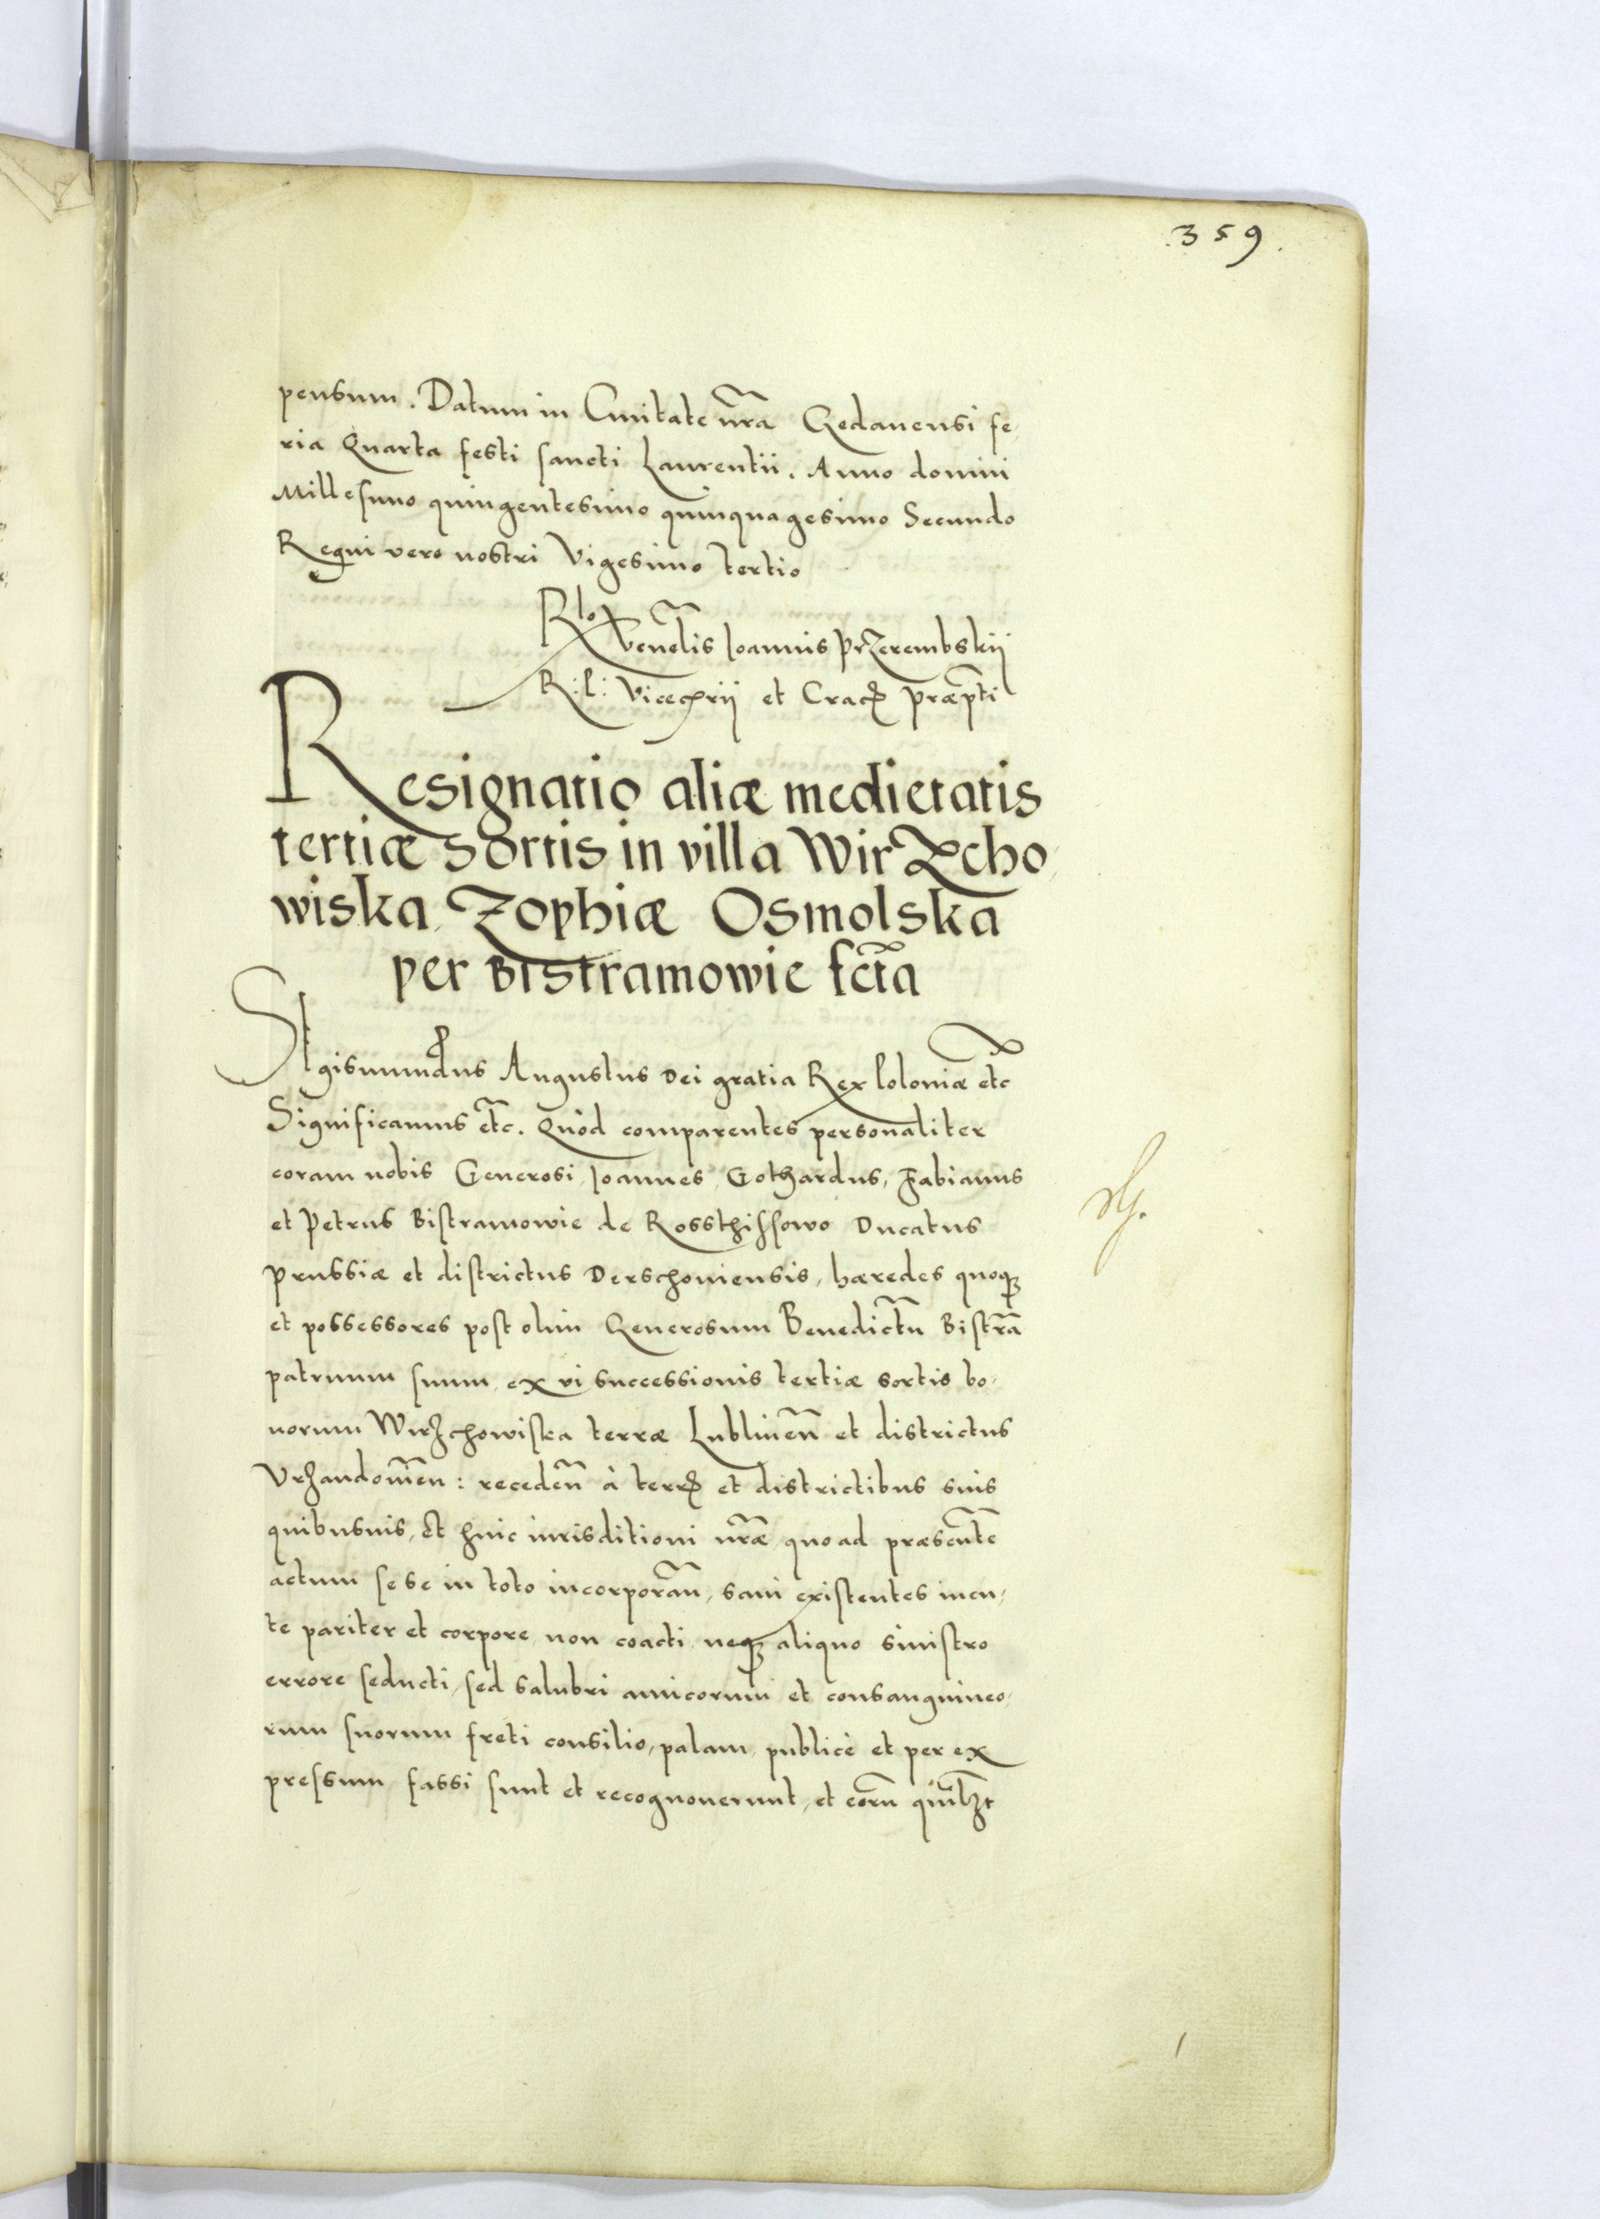 .359.
pensum. Datum in Ciuitate nra Gedanensi fe
ria Quarta festi sancti Laurentii. Anno domini
Millesimo quingentesimo quinquagesimo Secundo
Regni vero nostri Vigesimo tertio
Rlo
Venelis Ioannis Przerembskii
R: P: Vicecan̄rii et Crac̄ Præpti
Resignatio aliæ medietatis
tertiæ sortis in villa Wirzcho
wiska Zophiæ Osmolska
per Bistramowie fcta
Sigismundus Augustus Dei gratia Rex Poloniæ etc
Significamus etc. Quòd comparentes personaliter
coram nobis Generosi Ioannes, Gothardus, Fabianus
et Petrus Bistramowie de Rossthissowo Ducatus
Prussiæ et districtus Derschouiensis, hæredes quoq;
et possessores post olim Generosum Benedictu Bistra
patruum suum, ex vi successionis tertiæ sortis bo,
norum Wirzchowiska terræ Lublinen et districtus
Vrzandomien: receden à terr et districtibus suis
quibusuis, Et huic iurisditioni nræ, quo ad præsente
actum sese in toto incorporan, sani existentes men,
te pariter et corpore, non coacti neq; aliquo sinistro
errore seducti, sed salubri amicorum et consanguineo,
rum suorum freti consilio, palam, publicè et per ex
pressum fassi sunt et recognouerunt, et eoru quilzt